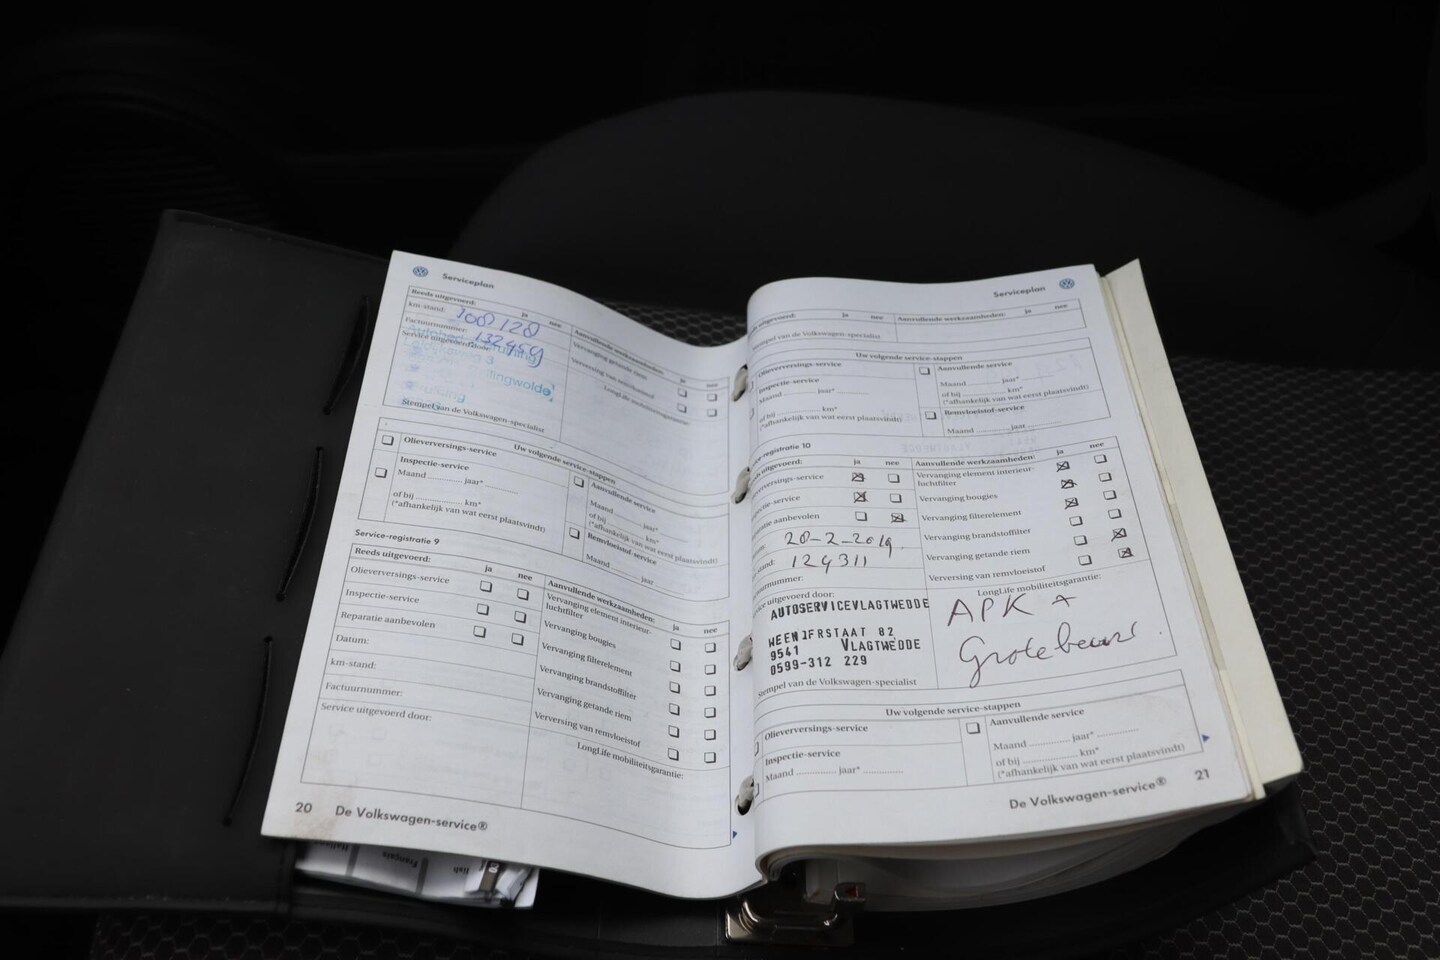 Serviceplan
Reeds uitgevoerd:
ja nee
km-stand: 108128
Factuurnummer: 132959
Aanvullende werkzaamheden:
ja nee
Service uitgevoerd door:
Vervanging getande riem
Verversing van remvloeistof
LongLife mobiliteitsgarantie:
Stempel van de Volkswagen-specialist
Uw volgende service-stappen
Olieverversings-service
Inspectie-service
Maand jaar*
of bij km*
(*afhankelijk van wat eerst plaatsvindt)
Aanvullende service
Maand jaar*
of bij km*
(*afhankelijk van wat eerst plaatsvindt)
Remvloeistof-service
Maand jaar
Service-registratie 9
Reeds uitgevoerd:
ja nee
Olieverversings-service
Inspectie-service
Reparatie aanbevolen
Datum:
km-stand:
Factuurnummer:
Service uitgevoerd door:
Aanvullende werkzaamheden:
ja nee
Vervanging element interieur-
luchtfilter
Vervanging bougies
Vervanging filterelement
Vervanging brandstoffilter
Vervanging getande riem
Verversing van remvloeistof
LongLife mobiliteitsgarantie:
20 De Volkswagen-service®
Serviceplan
uitgevoerd:
ja nee
Aanvullende werkzaamheden:
ja nee
stempel van de Volkswagen-specialist
Uw volgende service-stappen
Olieverversings-service
Inspectie-service
Maand jaar*
of bij km*
(*afhankelijk van wat eerst plaatsvindt)
Aanvullende service
Maand jaar*
of bij km*
(*afhankelijk van wat eerst plaatsvindt)
Remvloeistof-service
Maand jaar
ce-registratie 10
s uitgevoerd:
ja nee
verversings-service
pectie-service
aratie aanbevolen
20-2-2019
stand: 124311
uurnummer:
ce uitgevoerd door:
AUTOSERVICEVLAGTWEDDE
9541 VLAGTWEDDE
0599-312 229
stempel van de Volkswagen-specialist
Aanvullende werkzaamheden:
ja nee
Vervanging element interieur-
luchtfilter
Vervanging bougies
Vervanging filterelement
Vervanging brandstoffilter
Vervanging getande riem
Verversing van remvloeistof
LongLife mobiliteitsgarantie:
APK +
Grote beurt
Uw volgende service-stappen
Olieverversings-service
Inspectie-service
Maand jaar*
Aanvullende service
Maand jaar*
of bij km*
(*afhankelijk van wat eerst plaatsvindt)
De Volkswagen-service® 21
Français